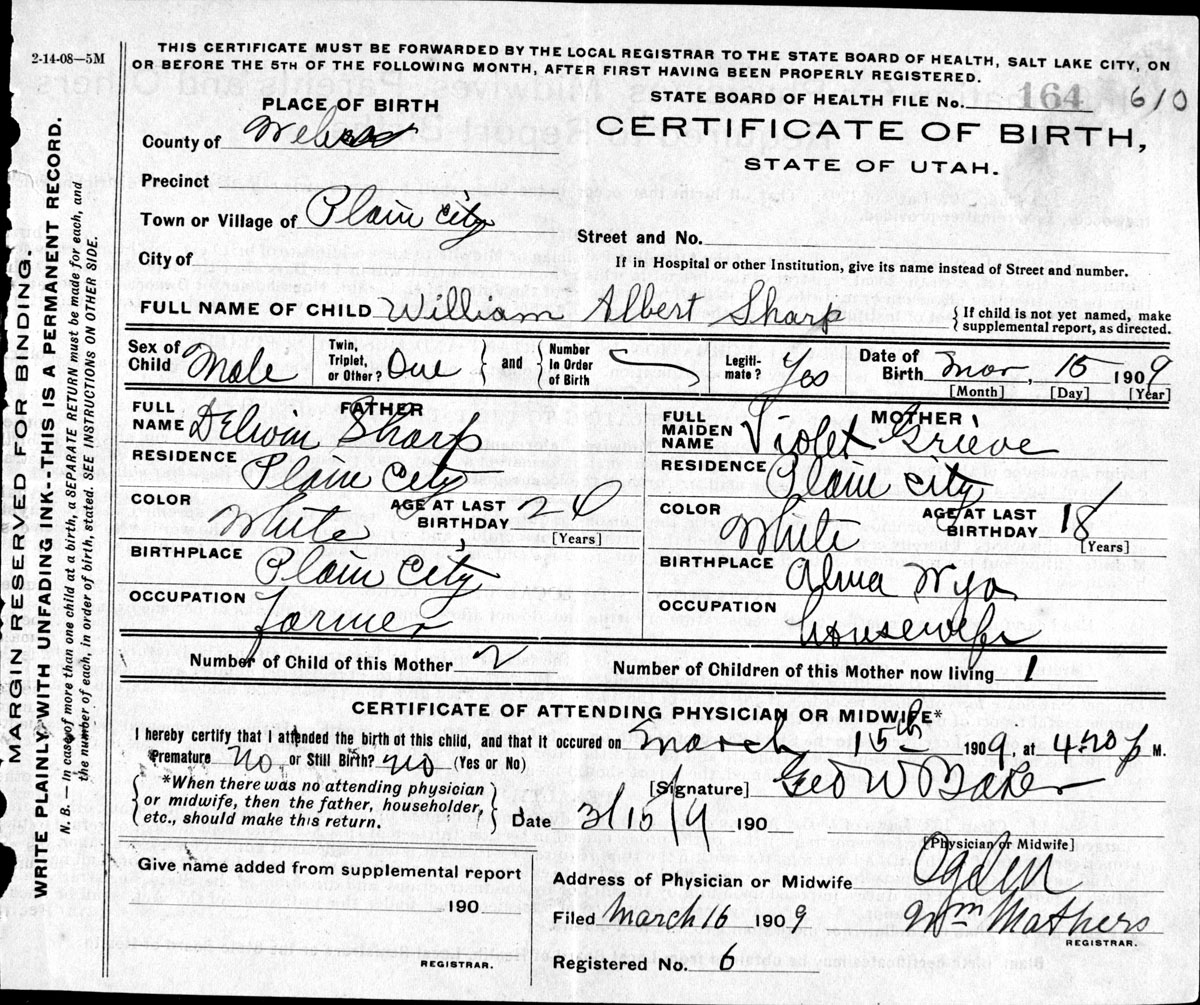 2-14-08—5M
THIS CERTIFICATE MUST BE FORWARDED BY THE LOCAL REGISTRAR TO THE STATE BOARD OF HEALTH, SALT LAKE CITY, ON
OR BEFORE THE 5TH OF THE FOLLOWING MONTH, AFTER FIRST HAVING BEEN PROPERLY REGISTERED.
MARGIN RESERVED FOR BINDING.
WRITE PLAINLY WITH UNFADING INK--THIS IS A PERMANENT RECORD.
N. B. — In case of more than one child at a birth, a SEPARATE RETURN must be made for each, and
the number of each, in order of birth, stated. SEE INSTRUCTIONS ON OTHER SIDE.
STATE BOARD OF HEALTH FILE No. 164 610
CERTIFICATE OF BIRTH,
STATE OF UTAH.
PLACE OF BIRTH
County of Weber
Precinct
Town or Village of Plain City
Street and No.
City of
If in Hospital or other Institution, give its name instead of Street and number.
FULL NAME OF CHILD William Albert Sharp
{ If child is not yet named, make
supplemental report, as directed.
Sex of Child Male
Twin, Triplet, or Other? One } and { Number in Order of Birth
Legiti-mate? Yes
Date of Birth Mar, 15 1909
[Month] [Day] [Year]
FATHER
FULL NAME Delwin Sharp
RESIDENCE Plain City
COLOR White
AGE AT LAST BIRTHDAY 24
[Years]
BIRTHPLACE Plain City
OCCUPATION Farmer
MOTHER
FULL MAIDEN NAME Violet Grieve
RESIDENCE Plain City
COLOR White
AGE AT LAST BIRTHDAY 18
[Years]
BIRTHPLACE Alma Wyo
OCCUPATION Housewife
Number of Child of this Mother 2
Number of Children of this Mother now living 1
CERTIFICATE OF ATTENDING PHYSICIAN OR MIDWIFE*
I hereby certify that I attended the birth of this child, and that it occured on March 15th 1909, at 4:20 p M.
Premature No or Still Birth? No (Yes or No)
{ *When there was no attending physician
or midwife, then the father, householder,
etc., should make this return. }
[Signature] Geo W Baker
Date 3/15/9 190
[Physician or Midwife]
Give name added from supplemental report
190
REGISTRAR.
Address of Physician or Midwife Ogden
Filed March 16 1909 Wm Mathers
REGISTRAR.
Registered No. 6